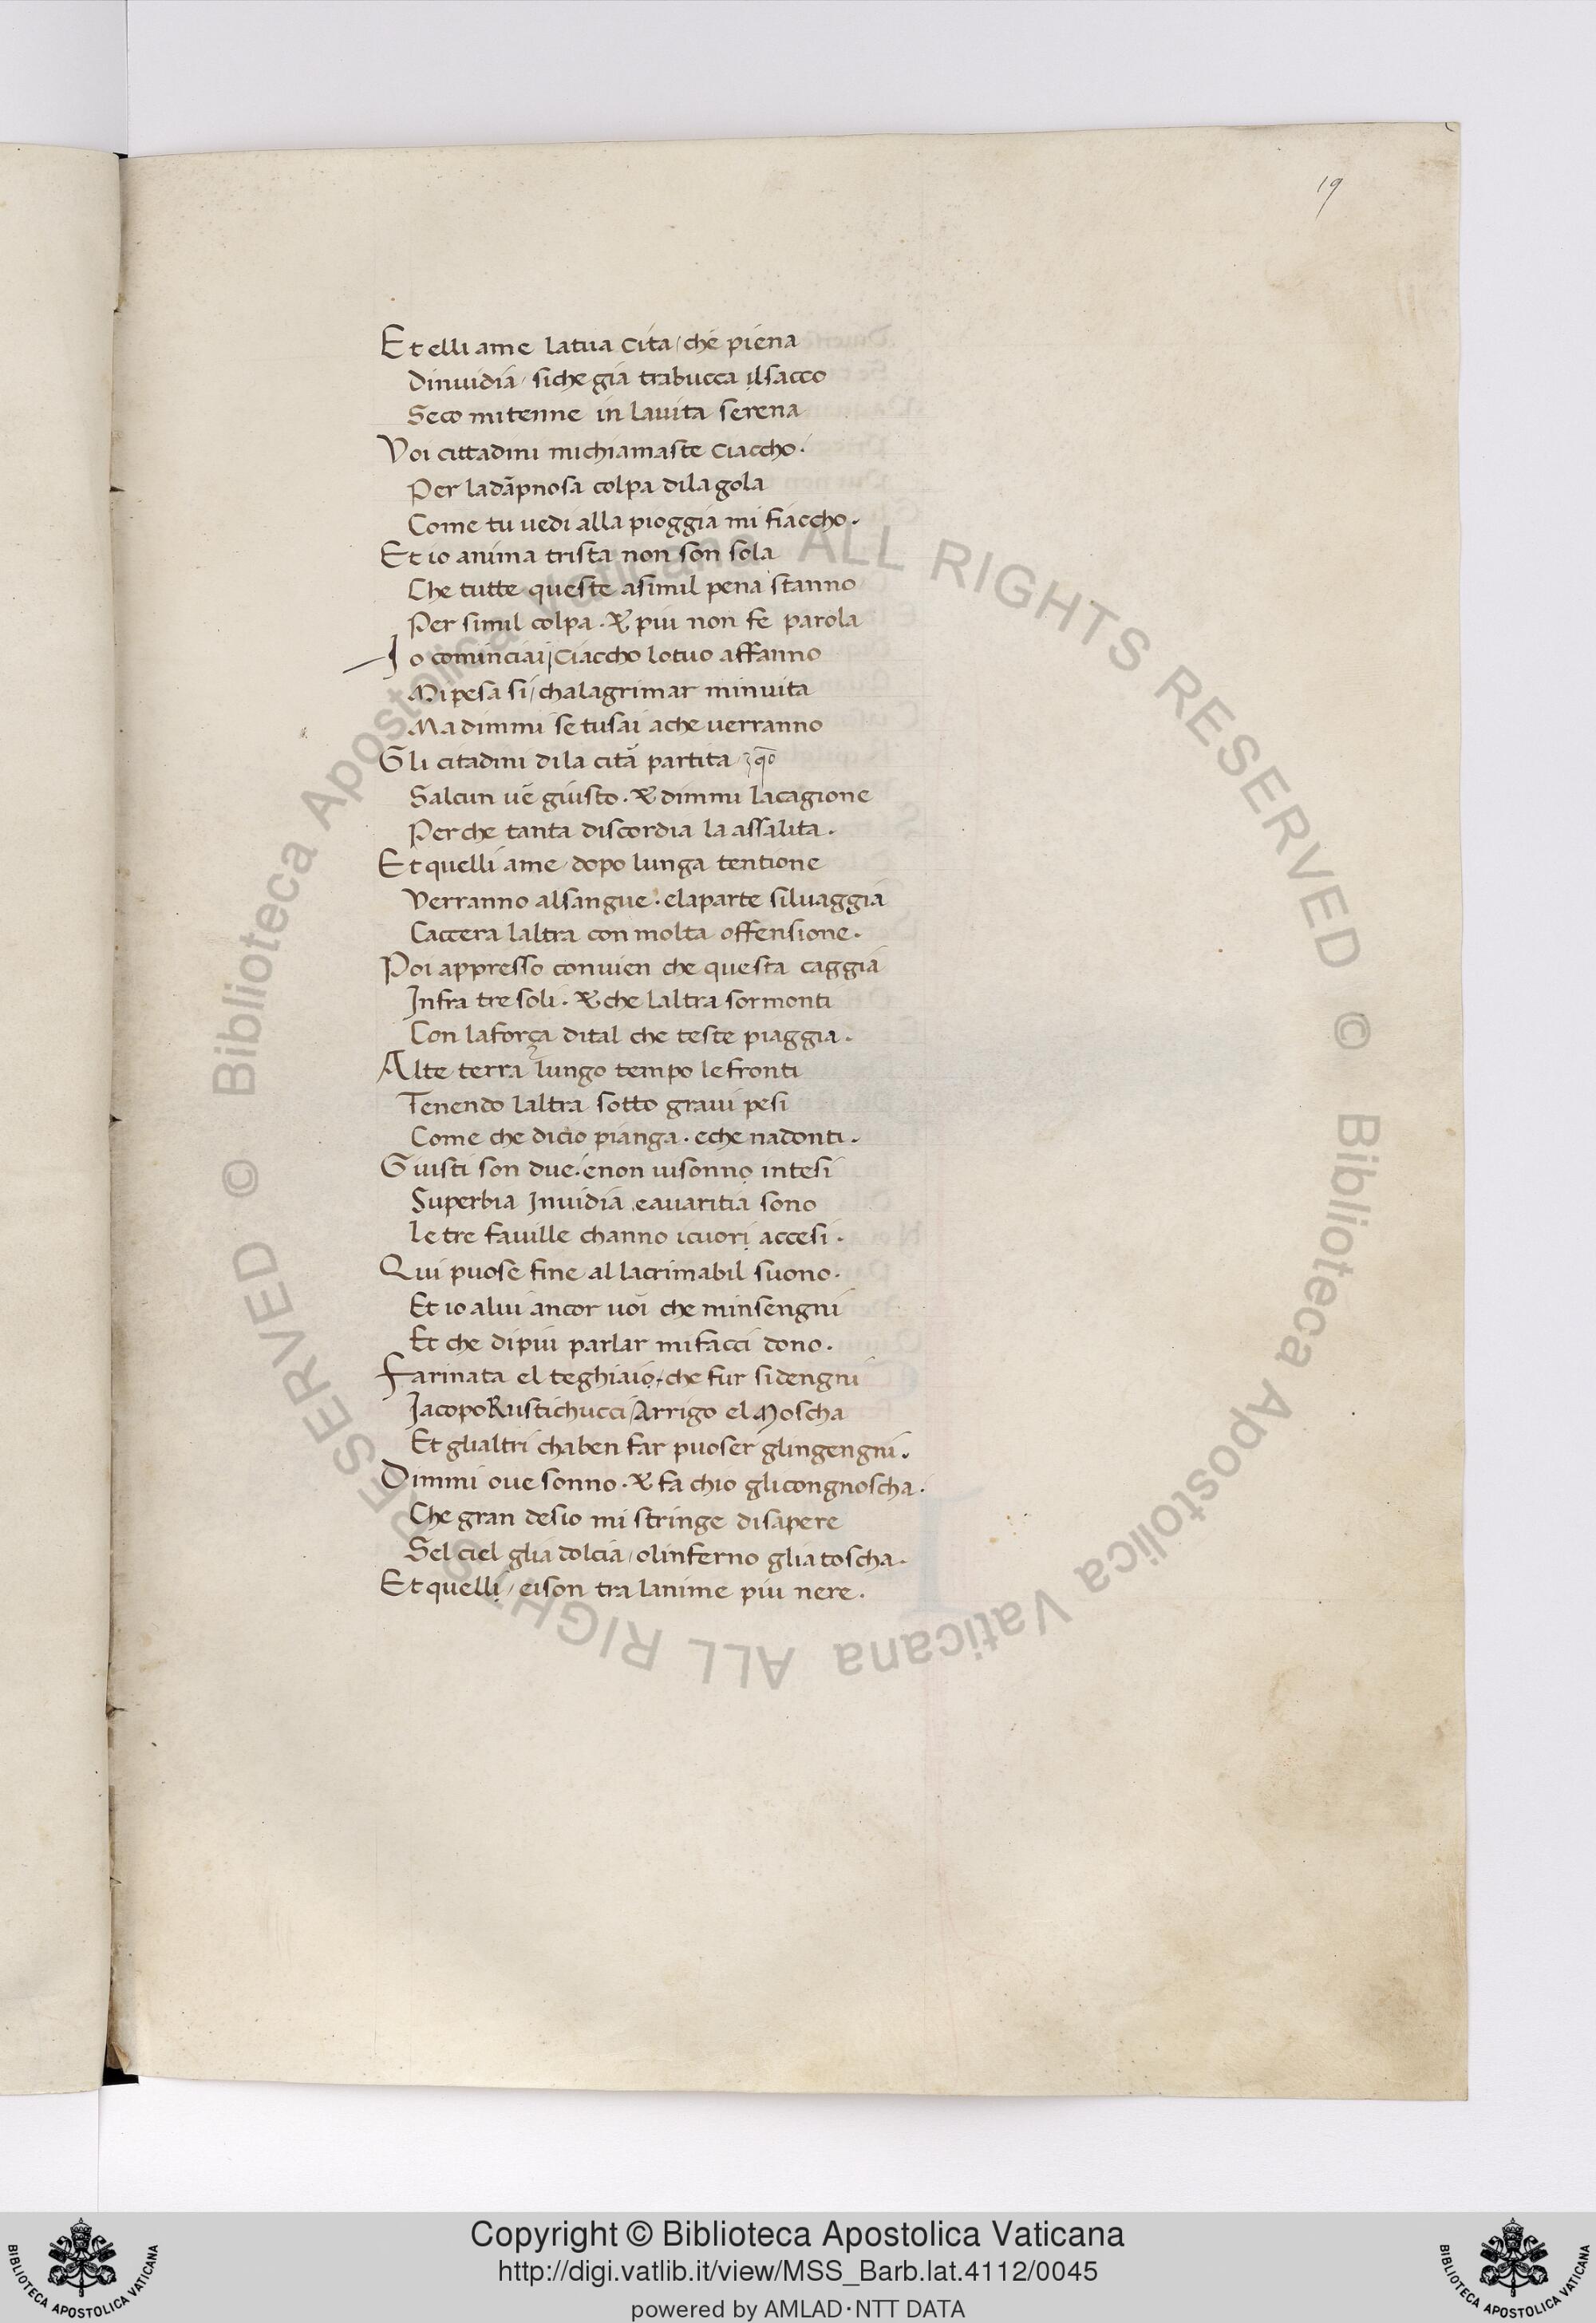 19
Et elli ame latua Cita / ché piena
Dinuidia / siche gia trabucca ilsacco
Seco mitenne in lauita serena
Voi cittadini michiamaste Ciaccho.
Per ladāpnosa colpa dila gola
Come tu uedi alla pioggia mi fiaccho.
Et io anima trista non son sola
Che tutte queste asimil pena stanno
Per simil colpa . & piu non fe parola
Io cominciai / Ciaccho lotuo affanno
Mi pesa si / chalagrimar minuita
Ma dimmi se tusai ache uerranno
Gli citadini dila cità partita
Salcun ué giusto . & dimmi lacagione
Perche tanta discordia la assalita.
Et quelli ame / dopo lunga tentione
Verranno alsangue . elaparte siluaggia
Caccera laltra con molta offensione.
Poi appresso conuien che questa caggia
Infra tre soli . & che laltra sormonti
Con laforça dital che teste piaggia.
Alte terra lungo tempo lefronti
Tenendo laltra sotto graui pesi
Come che dicio pianga . eche nadonti.
Giusti son due . enon uisonno intesi
Superbia Inuidia . eauaritia sono
Le tre fauille channo icuori accesi.
Qui puose fine al lacrimabil suono.
Et io alui ancor uoi che minsengni
Et che dipiu parlar mifacci dono.
Farinata el teghiaio / che fur sidengni
Iacopo Rustichucci / Arrigo el Moscha
Et glialtri chaben far puoser glingengni.
Dimmi oue sonno . & fa chio glicongnoscha.
Che gran desio mi stringe disapere
Sel ciel glia dolcia / olinferno glia toscha.
Et quelli / eison tra lanime piu nere.
© Biblioteca Apostolica Vaticana ALL RIGHTS RESERVED
© Biblioteca Apostolica Vaticana ALL RIGHTS RESERVED
Copyright © Biblioteca Apostolica Vaticana
http://digi.vatlib.it/view/MSS_Barb.lat.4112/0045
powered by AMLAD·NTT DATA
BIBLIOTECA APOSTOLICA VATICANA
BIBLIOTECA APOSTOLICA VATICANA